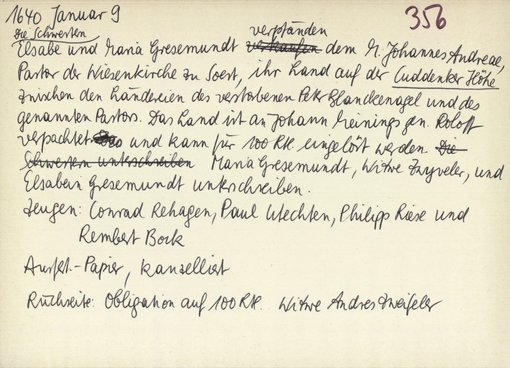 1640 Januar 9
356
Die Schwestern
Elsabe und Maria Gresemundt verpfänden verkaufen dem M. Johannes Andreae,
Pastor der Wiesenkirche zu Soest, ihr Land auf der Cuddenker Höhe
zwischen den Ländereien des verstorbenen Peter Blanckenagel und des
genannten Pastors. Das Land ist an Johann Meinings gen. Roloff
verpachtet und kann für 100 Rtl. eingelöst werden. Die
Schwestern unterschreiben Maria Gresemundt, Witwe Zwyveler, und
Elsaben Gresemundt unterschreiben.
Zeugen: Conrad Rehagen, Paul Utechten, Philipp Riese und
Rembert Bock
Ausf.-Papier, kanzelliert
Rückseite: Obligation auf 100 Rtl. Witwe Andres Zweifeler